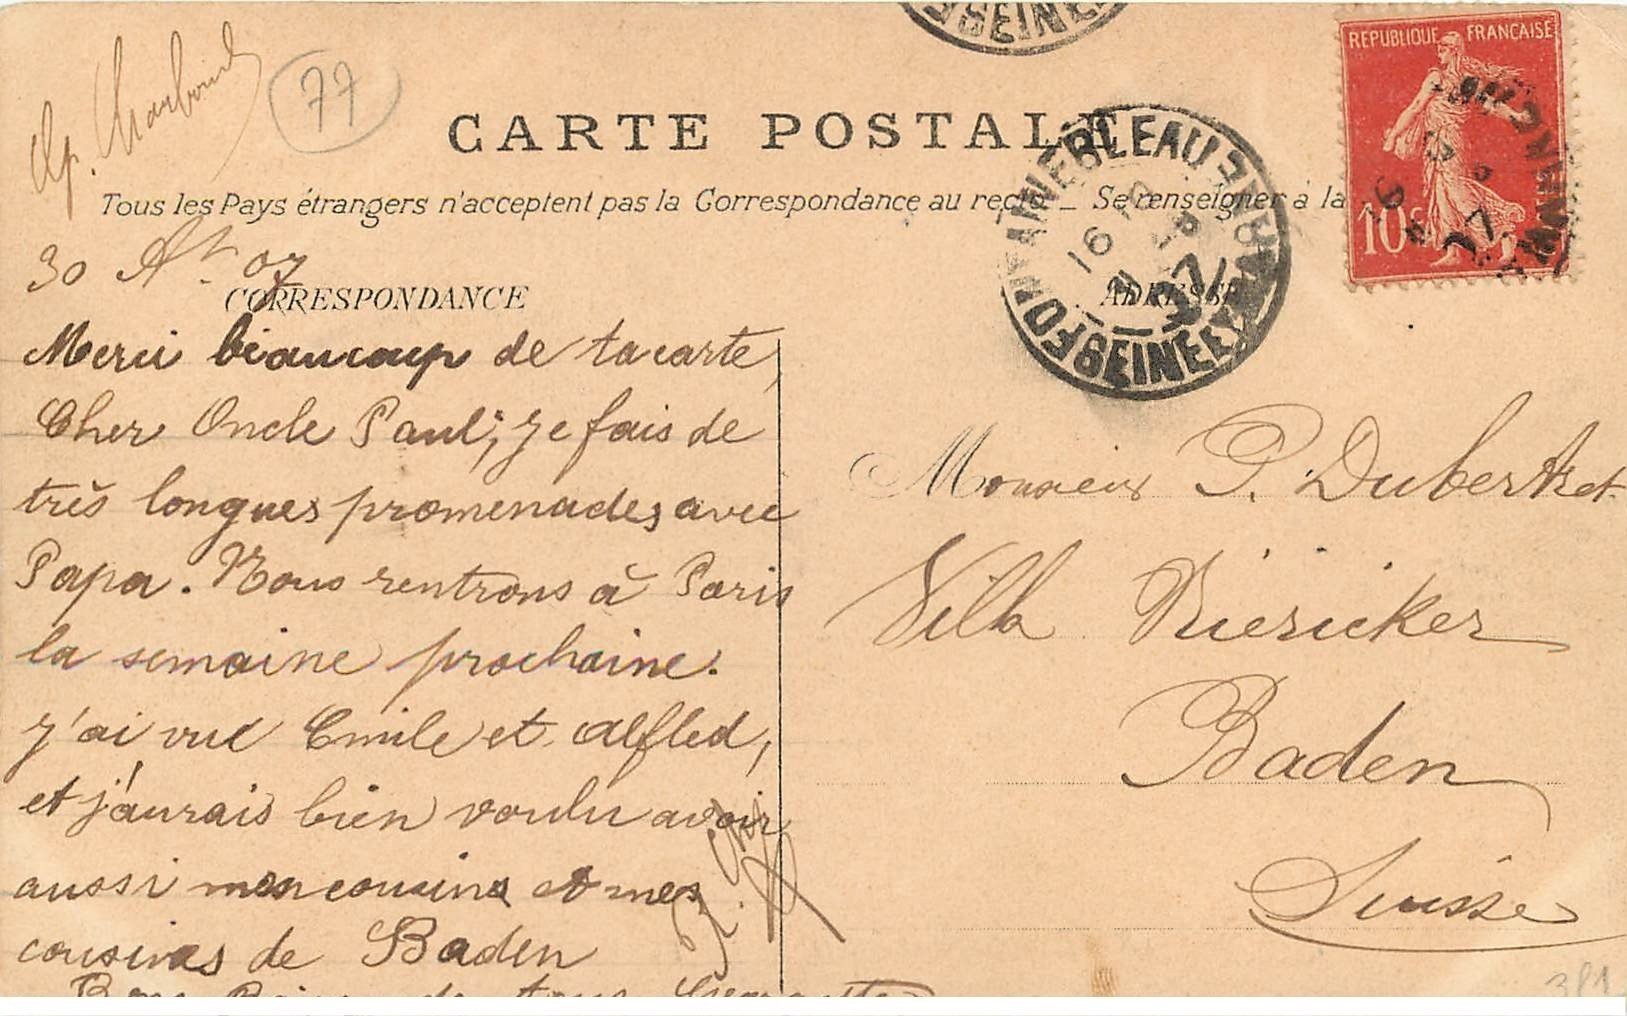 77
CARTE POSTALE
Tous les Pays étrangers n'acceptent pas la Correspondance au recto _ Se renseigner à la
REPUBLIQUE FRANÇAISE
10c
FONTAINEBLEAU
SEINE ET MARNE
SEINE
30 At 07
CORRESPONDANCE
ADRESSE
Merci beaucoup de ta carte,
Cher Oncle Paul; je fais de
très longues promenades avec
Papa. Nous rentrons à Paris
la semaine prochaine.
J'ai vue Emile et Alfled,
et j'aurais bien voulu avoir
aussi mon cousins et mes
cousines de Baden
de tous
Monsieur P. Dubertret
Villa Riericker
Baden
Suisse
381